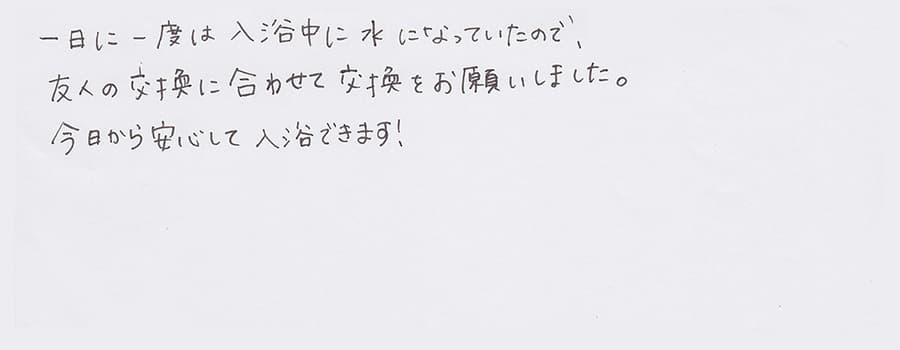 一日に一度は入浴中に水になっていたので、
友人の交換に合わせて交換をお願いしました。
今日から安心して入浴できます!